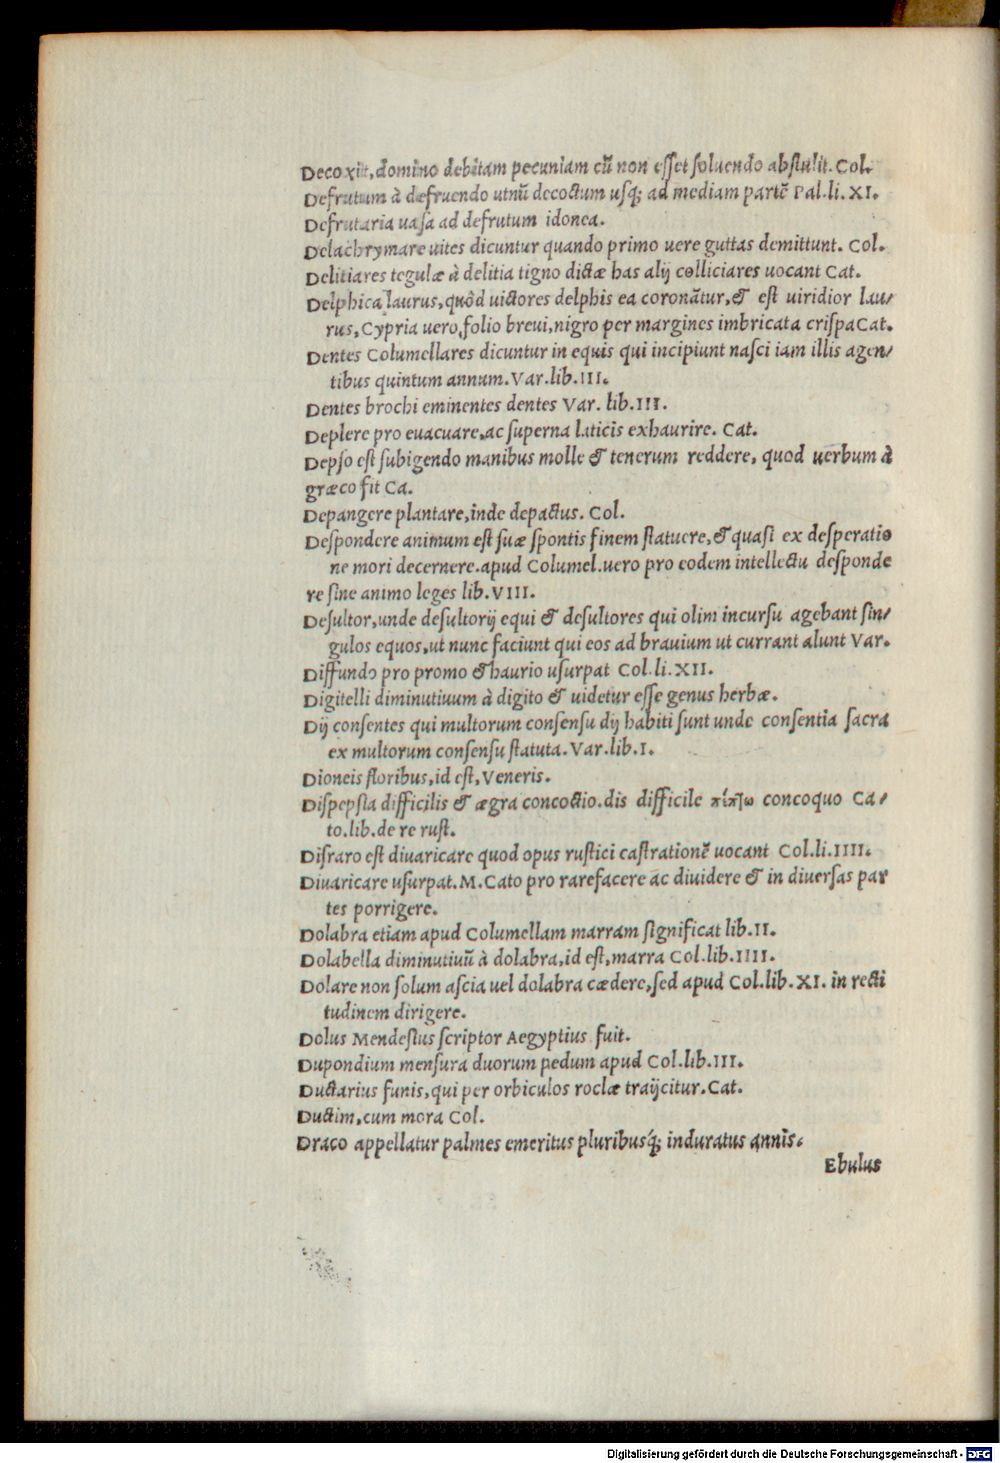 Decoxit, domino debitam pecuniam cū non eſſet ſoluendo abſtulit. Col.
Defrutum à defruendo utnū decoctum uſq; ad mediam partē Pal. li. XI.
Defrutaria uaſa ad defrutum idonea.
Delachrymare uites dicuntur quando primo uere guttas demittunt. Col.
Delitiares tegulæ à delitia tigno dictæ has alij colliciares uocant Cat.
Delphica laurus, quòd uictores delphis ea coronātur, & eſt uiridior lau/
rus, Cypria uero, folio breui, nigro per margines imbricata criſpa Cat.
Dentes Columellares dicuntur in equis qui incipiunt naſci iam illis agen/
tibus quintum annum. Var. lib. III.
Dentes brochi eminentes dentes Var. lib. III.
Deplere pro euacuare, ac ſuperna laticis exhaurire. Cat.
Depſo eſt ſubigendo manibus molle & tenerum reddere, quod uerbum à
græco fit Ca.
Depangere plantare, inde depactus. Col.
Deſpondere animum eſt ſuæ ſpontis finem ſtatuere, & quaſi ex deſperatio
ne mori decernere. apud Columel. uero pro eodem intellectu deſponde
re ſine animo leges lib. VIII.
Deſultor, unde deſultorij equi & deſultores qui olim incurſu agebant ſin/
gulos equos, ut nunc faciunt qui eos ad brauium ut currant alunt Var.
Diffundo pro promo & haurio uſurpat Col. li. XII.
Digitelli diminutiuum à digito & uidetur eſſe genus herbæ.
Dij conſentes qui multorum conſenſu dij habiti ſunt unde conſentia ſacra
ex multorum conſenſu ſtatuta. Var. lib. I.
Dioneis floribus, id eſt, Veneris.
Diſpepſia difficilis & ægra concoctio. dis difficile πίπτω concoquo Ca/
to. lib. de re ruſt.
Diſraro eſt diuaricare quod opus ruſtici caſtrationē uocant Col. li. IIII.
Diuaricare uſurpat. M. Cato pro rarefacere ac diuidere & in diuerſas par
tes porrigere.
Dolabra etiam apud Columellam marram ſignificat lib. II.
Dolabella diminutiuū à dolabra, id eſt, marra Col. lib. IIII.
Dolare non ſolum aſcia uel dolabra cædere, ſed apud Col. lib. XI. in recti
tudinem dirigere.
Dolus Mendeſius ſcriptor Aegyptius fuit.
Dupondium menſura duorum pedum apud Col. lib. III.
Ductarius funis, qui per orbiculos roclæ traijcitur. Cat.
Ductim, cum mora Col.
Draco appellatur palmes emeritus pluribusq́; induratus annis.
Ebulus
Digitalisierung gefördert durch die Deutsche Forschungsgemeinschaft - DFG